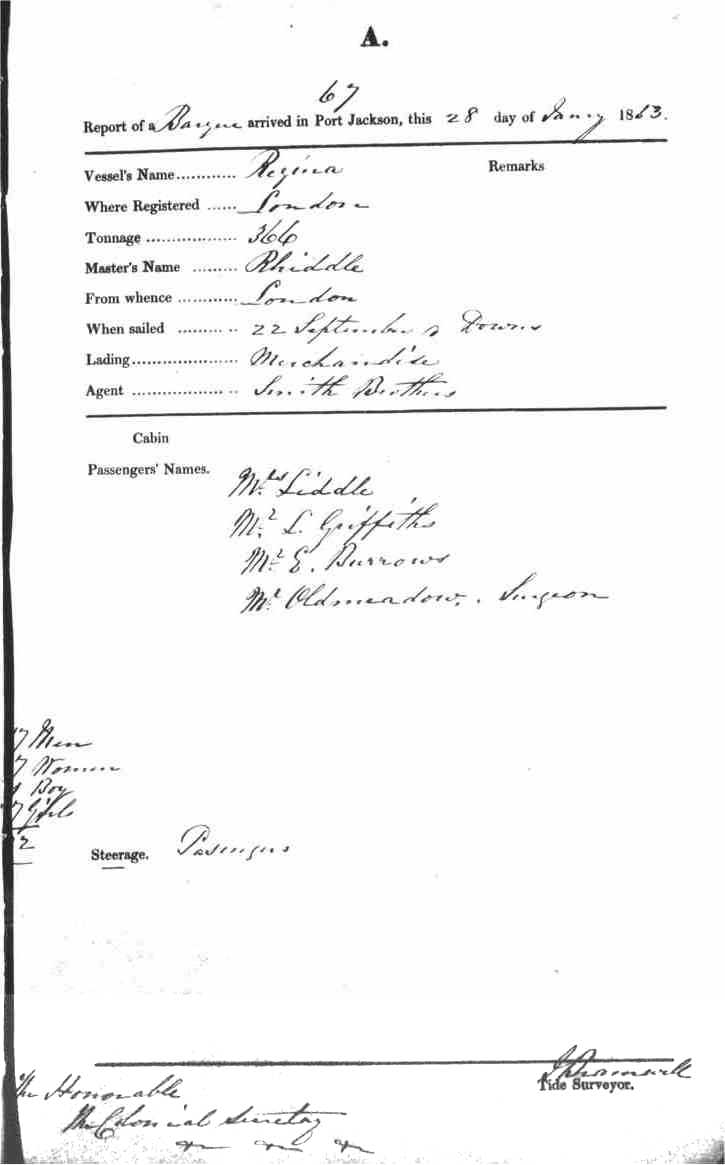 A.
67
Report of a Barque arrived in Port Jackson, this 28 day of Jany 1853.
Vessel's Name............ Regina Remarks
Where Registered ...... London
Tonnage .................. 366
Master's Name ......... Rhiddle
From whence ............ London
When sailed ........... 22 September Downs
Lading..................... Merchandise
Agent .................... Smith Brothers
Cabin
Passengers' Names.
Mrs Liddle
Mr L. Griffiths
Mr E. Burrows
Mr Oldmeadow, . Surgeon
7 Men
7 Women
1 Boy
7 Girls
2
Steerage. Pasengers
Tide Surveyor.
The Honorable
The Colonial Secretary